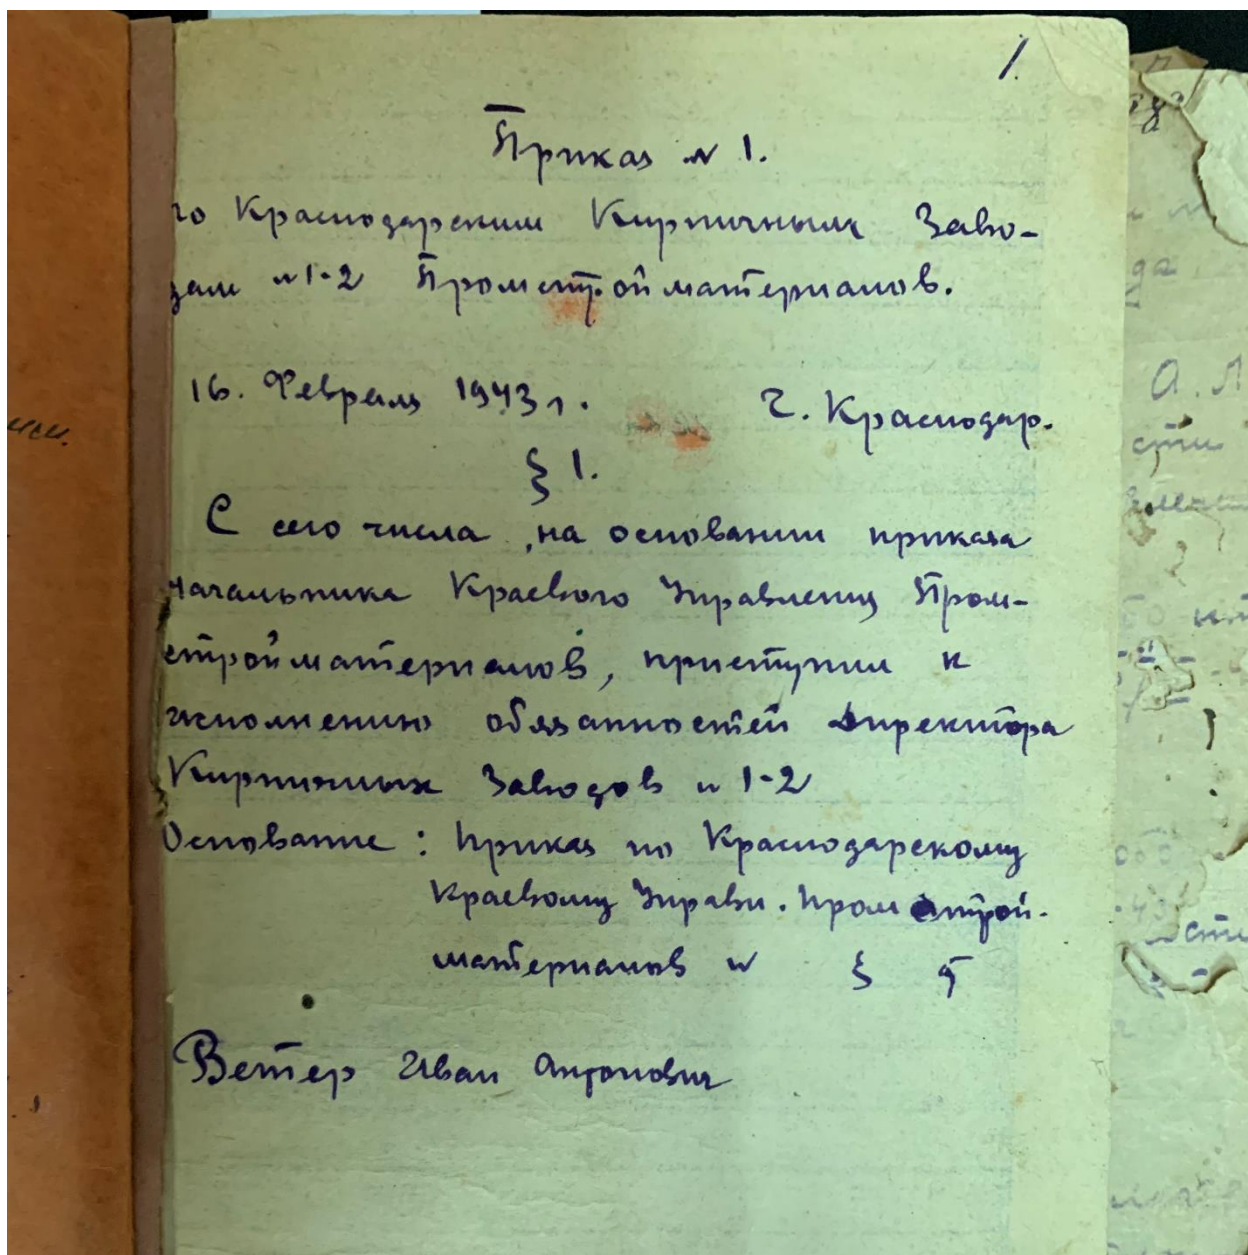 1.
Приказ № 1.
по Краснодарским Кирпичным Заво-
дам № 1-2 Промстройматериалов.
16. Февраля 1943 г. г. Краснодар.
§ 1.
С сего числа, на основании приказа
начальника Краевого Управления Пром-
стройматериалов, приступил к
исполнению обязанностей директора
Кирпичных Заводов № 1-2
Основание: Приказ по Краснодарскому
Краевому Управл. Пром строй-
материалов № §
Ветер Иван Антонович